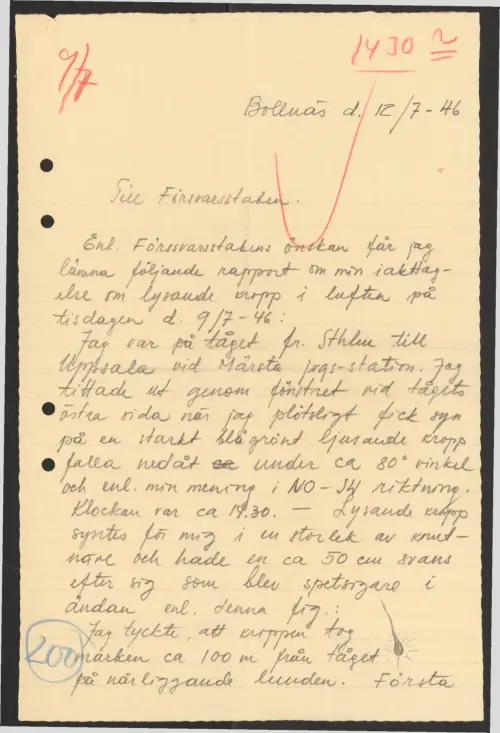 9/7
1430
Bollnäs d. 12/7-46
Till Försvarsstaben.
Enl. Försvarsstabens önskan får jag
lämna följande rapport om min iakttag-
else om lysande kropp i luften på
tisdagen d. 9/7-46:
Jag var på tåget fr. Sthlm till
Uppsala vid Märsta jvgs-station. Jag
tittade ut genom fönstret vid tågets
östra sida när jag plötsligt fick syn
på en starkt blågrönt ljusande kropp
falla nedåt under ca 80° vinkel
och enl. min mening i NO-SV riktning.
Klockan var ca 14.30. – Lysande kropp
syntes för mig i en storlek av knut-
näve och hade en ca 50 cm svans
efter sig som blev spetsigare i
ändan enl. denna fig.:
Jag tyckte, att kroppen tog
200
marken ca 100 m från tåget
på närliggande lunden. Första